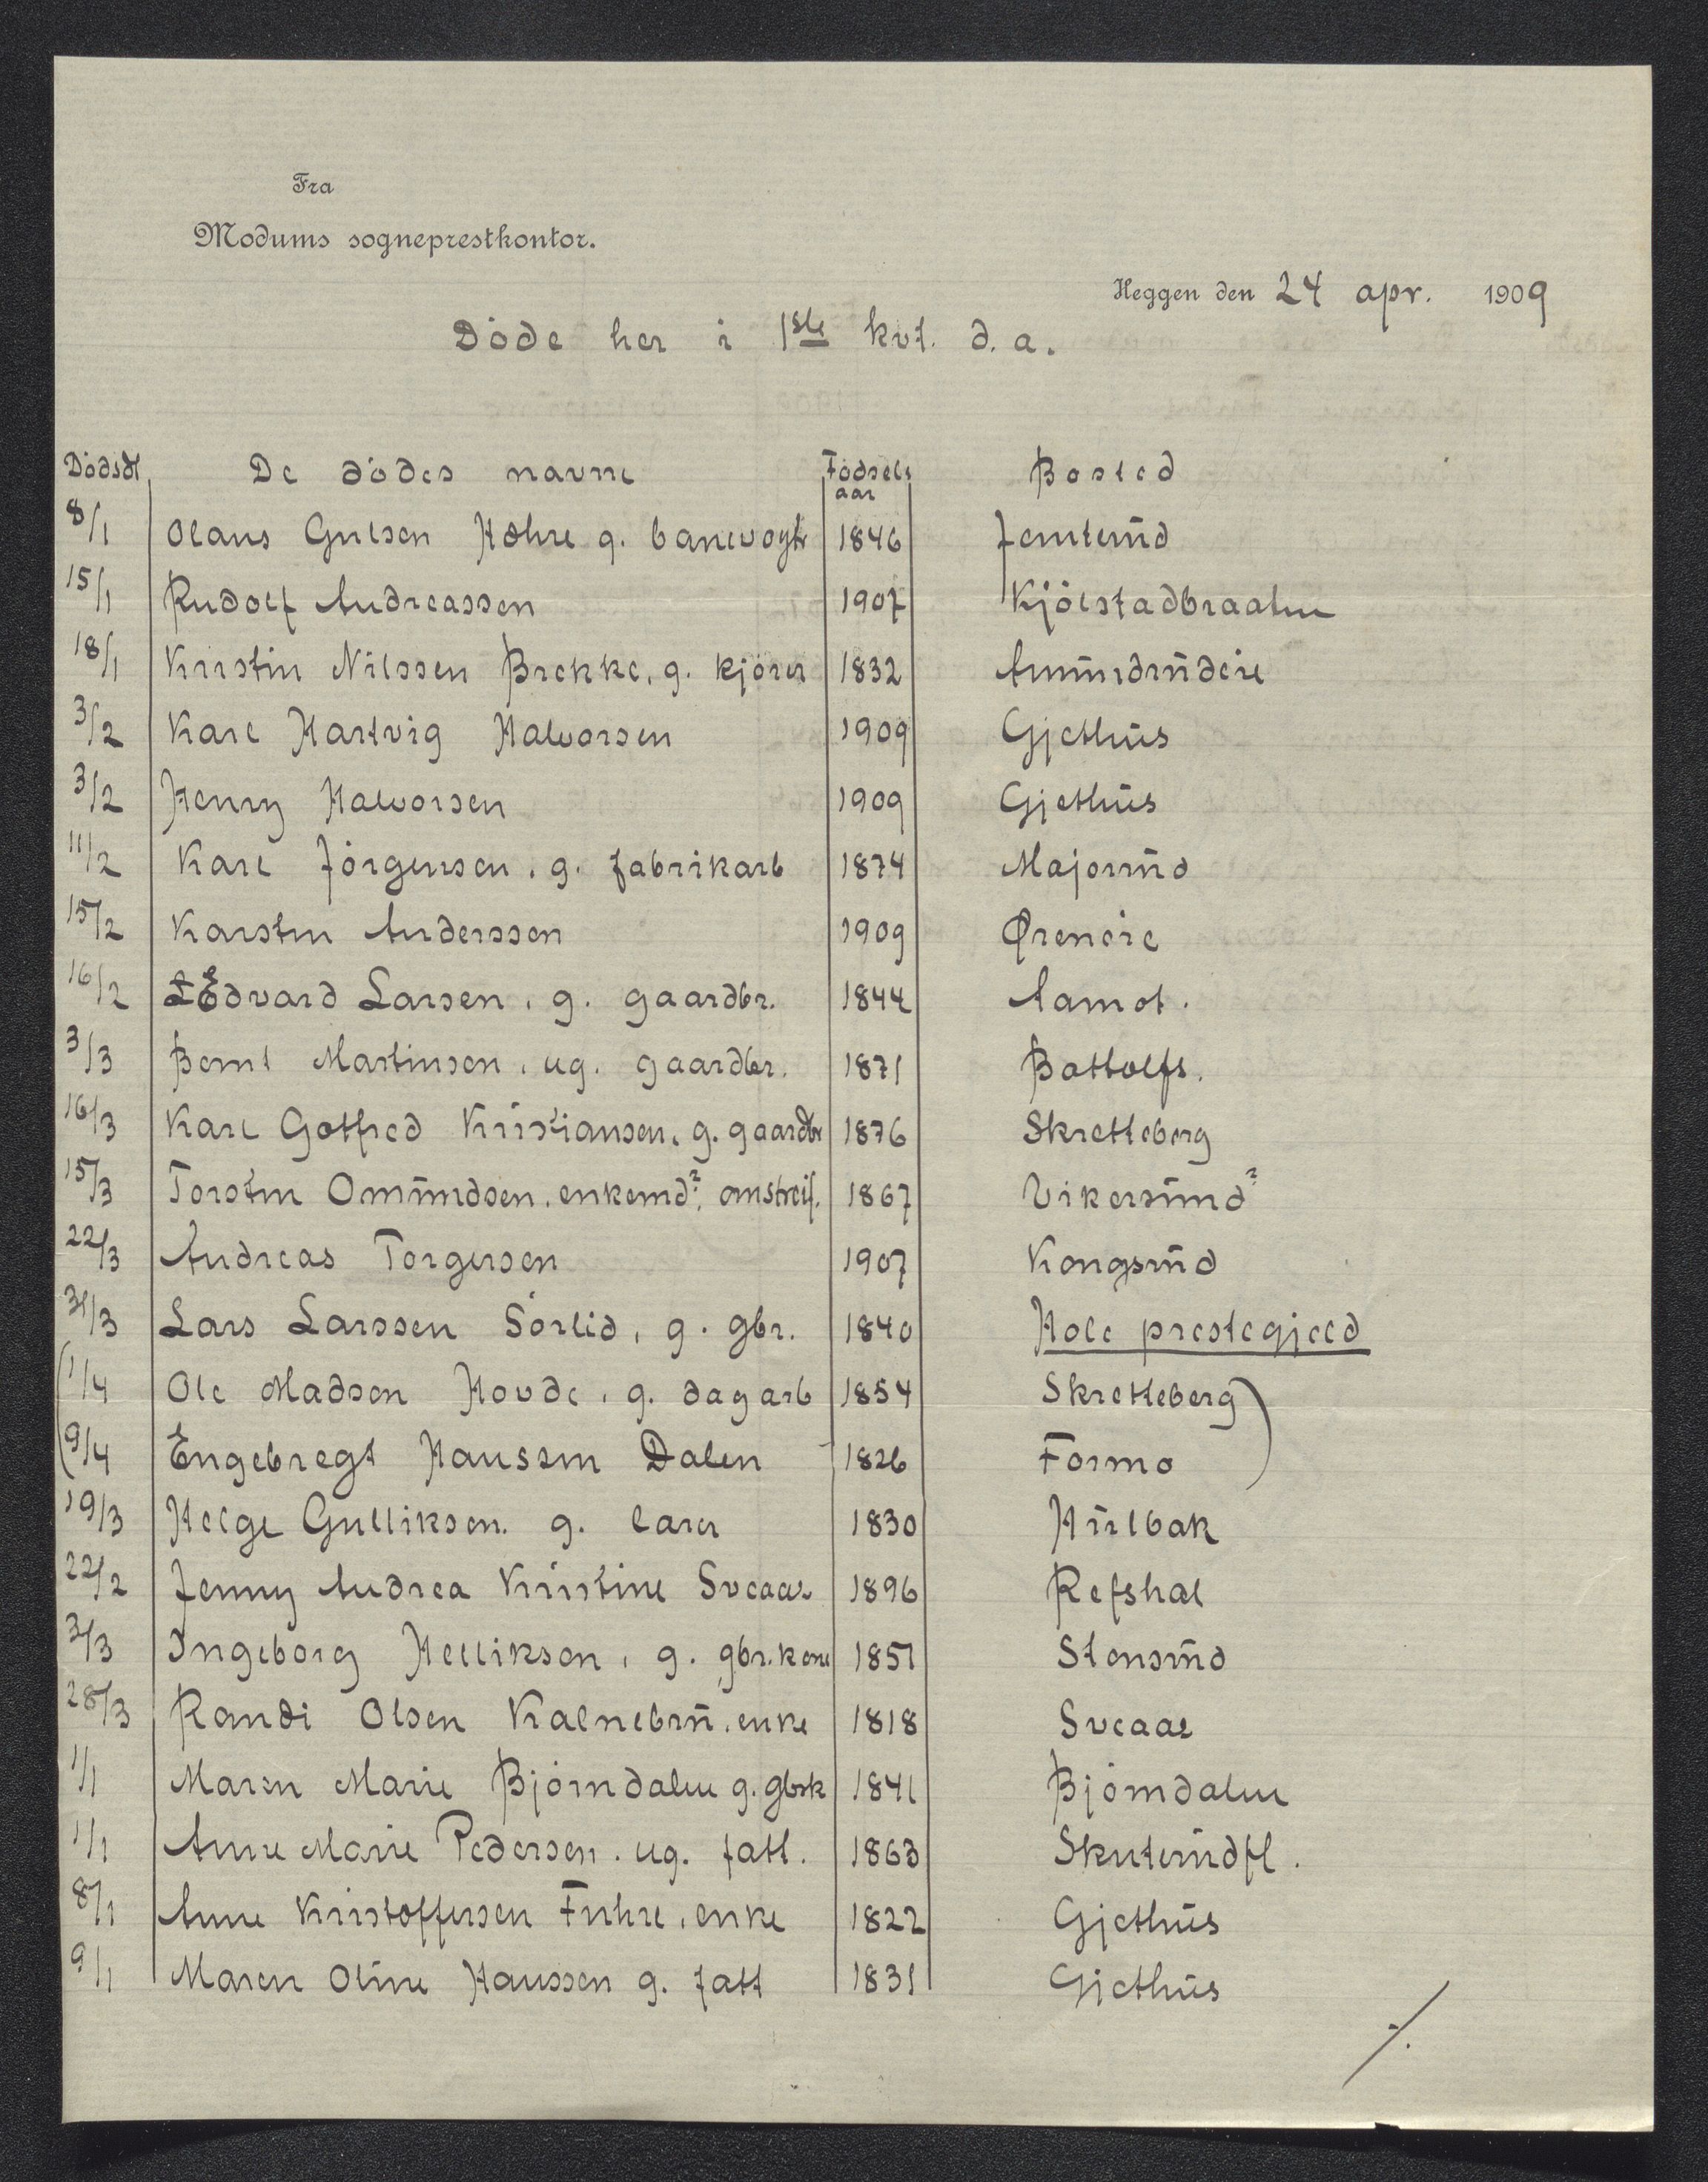 Fra
Modums sogneprestkontor.
Heggen den 24 apr. 1909
Døde her i 1ste kvt. d. a.
Dødsdt De dødes navne Fødsels aar Bosted
8/1 Olaus Gulsen Hæhre g. banevogtr 1846 Jemterud
15/1 Rudolf Andreassen 1907 Kjølstadbraaten
18/1 Kristin Nilssen Brekke, g. kjører 1832
3/2 Karl Hartvig Halvorsen 1909 Gjethus
3/2 Henry Halvorsen 1909 Gjethus
11/2 Karl Jörgensen, g. fabrikarb 1874 Majorud
15/2 Karsten Anderssen 1909 Øreneie
16/2 Edvard Larsen, g. gaardbr. 1844 Aamot.
3/3 Bernt Martinsen, ug. gaardbr. 1871 Bottolfs.
16/3 Karl Gotfred Kristiansen, g. gaardbr 1876 Skretteberg
15/3 Torsten Omundsen, enkemd?, omstreif. 1867 Vikersund?
22/3 Andreas Torgersen 1907 Kongsrud
31/3 Lars Larssen Sørlid, g. gbr. 1840 Hole prestegjeld
(1/4 Ole Madsen Hovde, g. dagarb 1854 Skretteberg)
(9/4 Engebregt Hanssen Dalen 1826 Formo)
19/3 Helge Gulliksen. g. lærer 1830 Hulbak
22/2 Jenny Andrea Kristine Sveaas 1896 Refshal
3/3 Ingeborg Helliksen, g. gbr.kone 1851 Stensrud
28/3 Randi Olsen Kalnebru, enke 1818 Sveaas
1/1 Maren Marie Bjørndalen g. gbrk 1841 Bjørndalen
1/1 Anne Marie Pedersen. ug. fatt. 1863 Skuterudfl.
8/1 Anne Kristoffersen Fuhre, enke 1822 Gjethus
9/1 Maren Oline Hanssen g. fatt 1831 Gjethus
./.